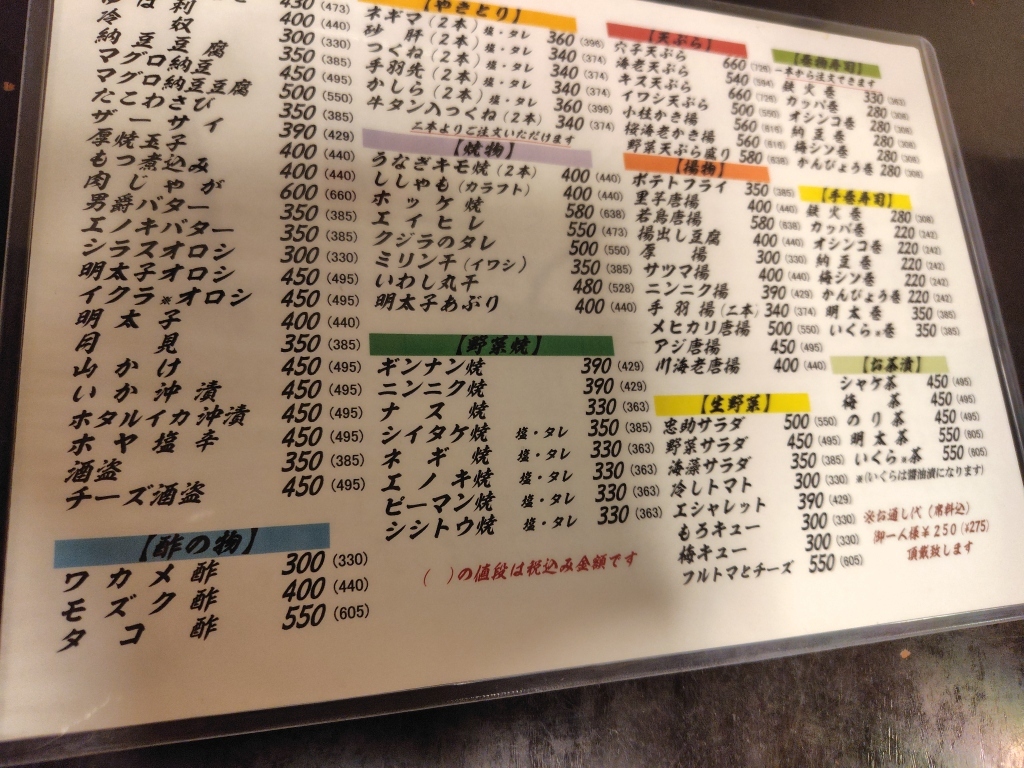 430 (473)
奴 400 (440)
納豆 300 (330)
マグロ納豆 350 (385)
マグロ納豆豆腐 450 (495)
たこわさび 500 (550)
ザーサイ 350 (385)
厚焼玉子 390 (429)
もつ煮込み 400 (440)
肉じゃが 400 (440)
男爵バター 600 (660)
エノキバター 350 (385)
シラスオロシ 300 (330)
明太子オロシ 450 (495)
イクラ※オロシ 450 (495)
明太子 400 (440)
月見 350 (385)
山かけ 450 (495)
いか沖漬 450 (495)
ホタルイカ沖漬 450 (495)
ホヤ塩辛 450 (495)
酒盗 350 (385)
チーズ酒盗 450 (495)
【酢の物】
ワカメ酢 300 (330)
モズク酢 400 (440)
タコ酢 550 (605)
【やきとり】
ネギマ(2本) 塩・タレ 360 (396)
砂肝(2本) 塩・タレ 340 (374)
つくね(2本) 塩・タレ 340 (374)
手羽先(2本) 塩・タレ 340 (374)
かしら(2本) 塩・タレ 360 (396)
牛タン入つくね(2本) 340 (374)
二本よりご注文いただけます
【焼物】
うなぎキモ焼(2本) 400 (440)
ししゃも(カラフト) 400 (440)
ホッケ焼 580 (638)
エイヒレ 550 (473)
クジラのタレ 500 (550)
ミリン干(イワシ) 350 (385)
いわし丸干 480 (528)
明太子あぶり 400 (440)
【野菜焼】
ギンナン焼 390 (429)
ニンニク焼 390 (429)
ナス焼 330 (363)
シイタケ焼 塩・タレ 350 (385)
ネギ焼 塩・タレ 330 (363)
エノキ焼 塩・タレ 330 (363)
ピーマン焼 塩・タレ 330 (363)
シシトウ焼 塩・タレ 330 (363)
( )の値段は税込み金額です
【天ぷら】
穴子天ぷら 660 (726)
海老天ぷら 540 (594)
キス天ぷら 660 (726)
イワシ天ぷら 500 (550)
小柱かき揚 560 (616)
桜海老かき揚 560 (616)
野菜天ぷら盛り 580 (638)
【揚物】
ポテトフライ 350 (385)
里芋唐揚 400 (440)
若鳥唐揚 580 (638)
揚出し豆腐 400 (440)
厚揚 300 (330)
サツマ揚 400 (440)
ニンニク揚 390 (429)
手羽揚(二本) 340 (374)
メヒカリ唐揚 500 (550)
アジ唐揚 450 (495)
川海老唐揚 400 (440)
【生野菜】
忠助サラダ 500 (550)
野菜サラダ 450 (495)
海藻サラダ 350 (385)
冷しトマト 300 (330)
エシャレット 390 (429)
もろキュー 300 (330)
梅キュー 300 (330)
フルトマとチーズ 550 (605)
【巻物寿司】
一本から注文できます
鉄火巻 330 (363)
カッパ巻 280 (308)
オシンコ巻 280 (308)
納豆巻 280 (308)
梅シソ巻 280 (308)
かんぴょう巻 280 (308)
【手巻寿司】
鉄火巻 280 (308)
カッパ巻 220 (242)
オシンコ巻 220 (242)
納豆巻 220 (242)
梅シソ巻 220 (242)
かんぴょう巻 220 (242)
明太巻 350 (385)
いくら※巻 350 (385)
【お茶漬】
シャケ茶 450 (495)
梅茶 450 (495)
のり茶 450 (495)
明太茶 550 (605)
いくら※茶 550 (605)
※(いくらは醤油漬になります)
※お通し代(席料込)
御一人様¥250(¥275)
頂戴致します